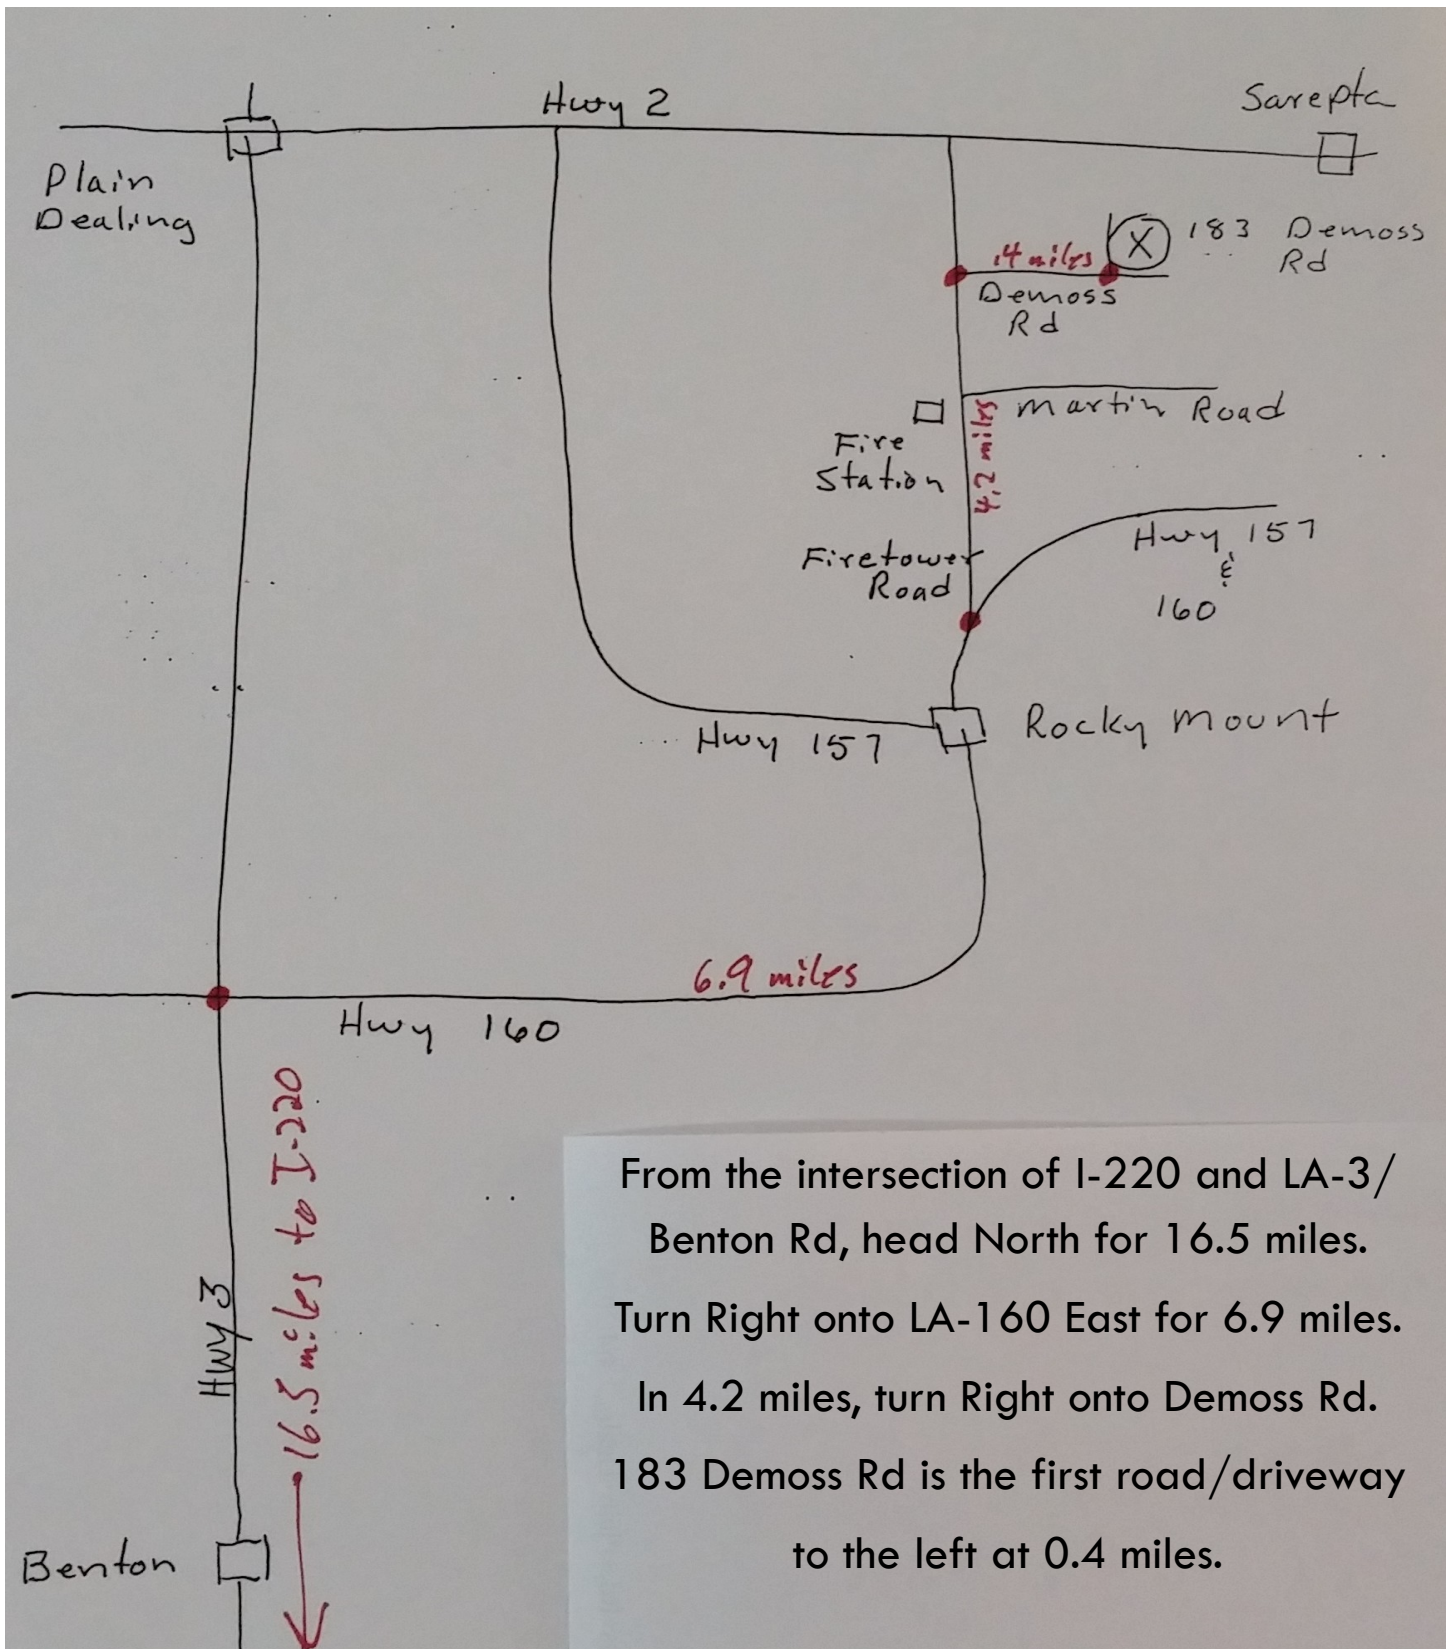 Hwy 2
Sarepta
Plain
Dealing
183 Demoss
Rd
X
.4 miles
Demoss
Rd
Martin Road
Fire
Station
4.2 miles
Firetower
Road
Hwy 157
&
160
Rocky Mount
Hwy 157
6.9 miles
Hwy 160
16.5 miles to I-220
HWY 3
Benton
From the intersection of I-220 and LA-3/
Benton Rd, head North for 16.5 miles.
Turn Right onto LA-160 East for 6.9 miles.
In 4.2 miles, turn Right onto Demoss Rd.
183 Demoss Rd is the first road/driveway
to the left at 0.4 miles.